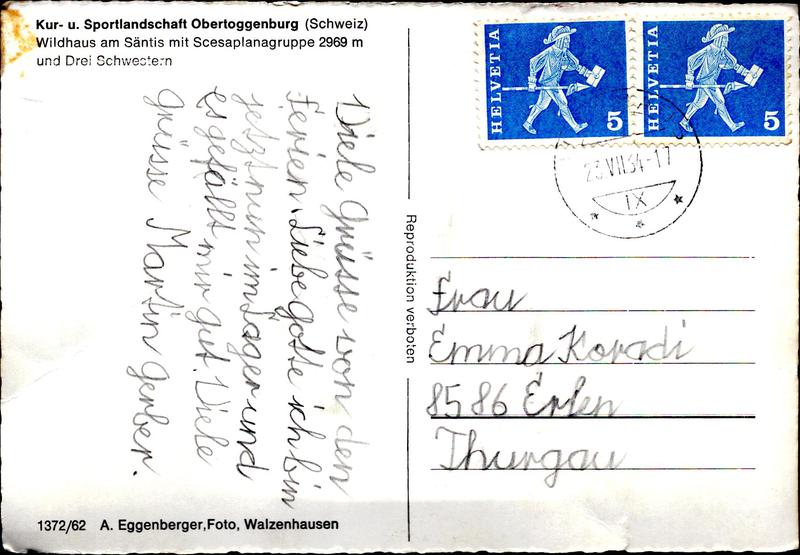 Kur- u. Sportlandschaft Obertoggenburg (Schweiz)
Wildhaus am Säntis mit Scesaplanagruppe 2969 m
und Drei Schwestern
Viele Grüsse von den
Ferien. Liebe gotte ich bin
jetzt nun im Lager und
es gefällt mir gut. Viele
grüsse Martin Gerber.
1372/62 A. Eggenberger,Foto, Walzenhausen
Reproduktion verboten
HELVETIA 5
HELVETIA 5
23 VII 34-17
IX
Frau
Emma Koradi
8586 Erlen
Thurgau